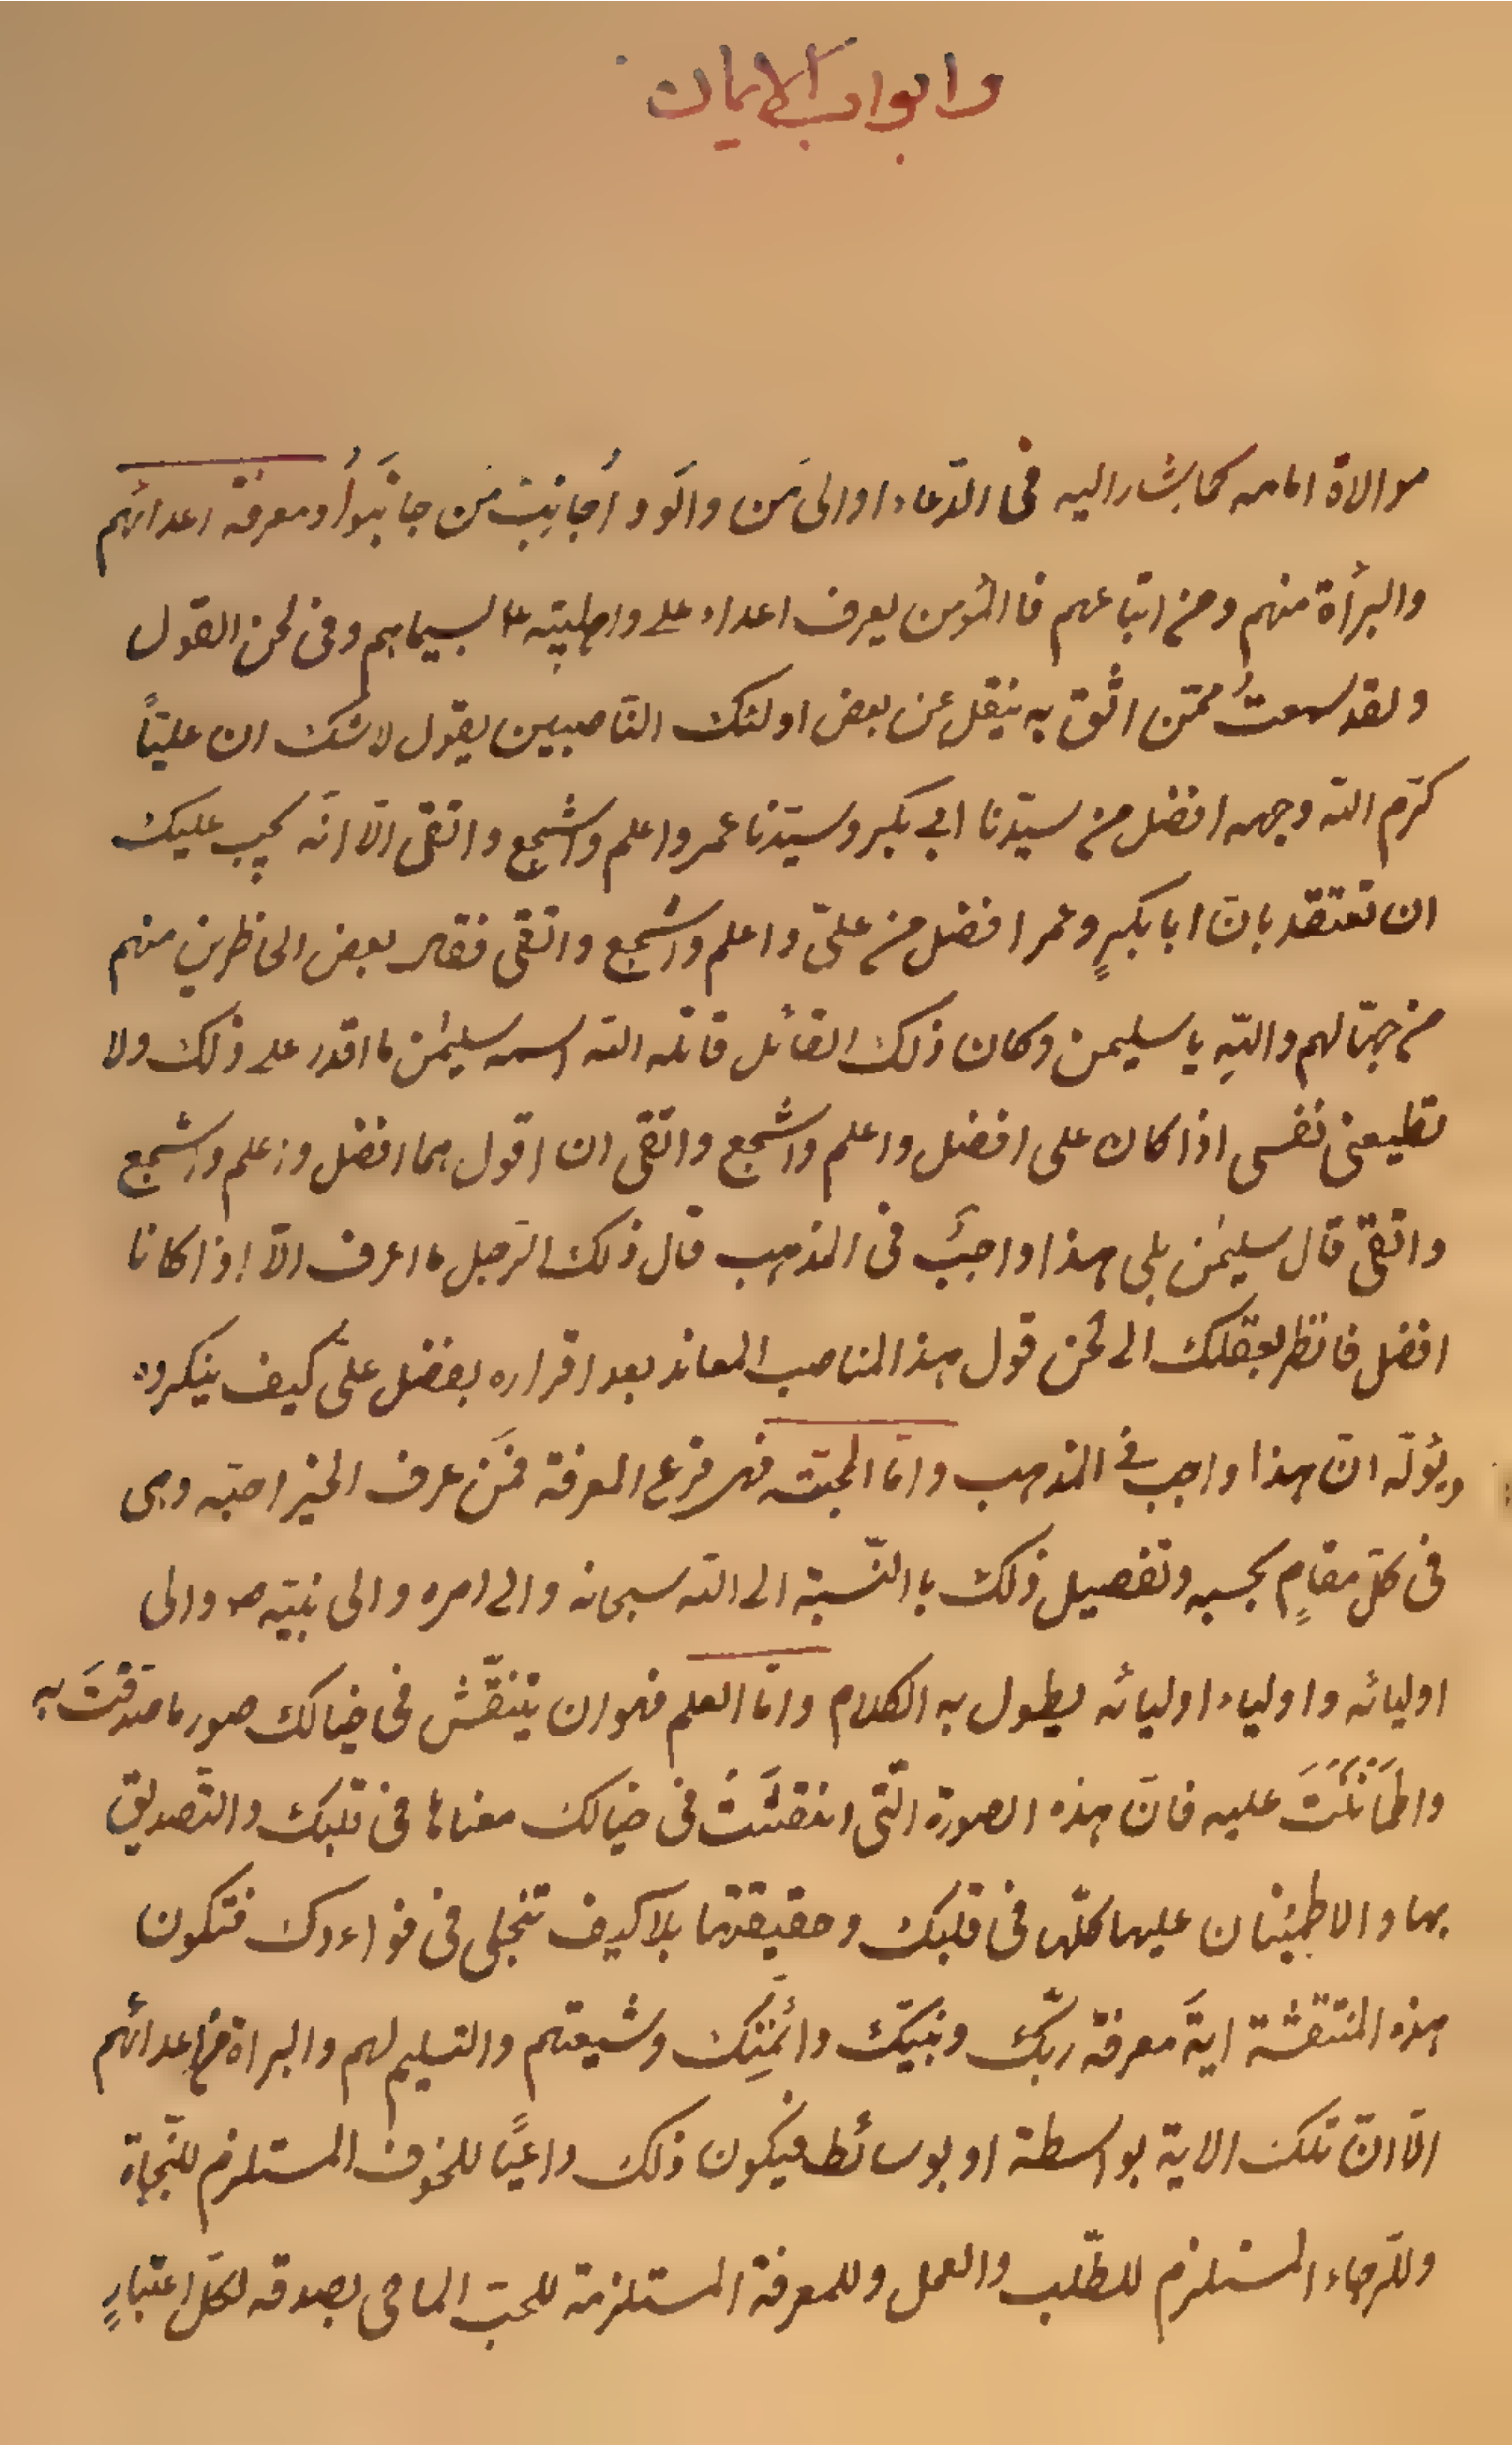 وابواب الايمان
موالاة امامه كما يشار اليه فى الدّعاء اوالى مَن والَو و اُجانِبُ مَن جانَبوُا ومعرفة اعدائهم
والبرأة منهم ومن اتباعهم فاالمؤمن يعرف اعداء على واهلبيته ع بسيماهم وفى لحن القول
ولقد سمعتُ ممّن اثق به ينقل عن بعض اولئك النّاصبين يقول لا شك ان عليّاً
كرّم اللّه وجهه افضل من سيّدنا ابى بكر وسيّدنا عمر واعلم واشجع واتقى الّا انّه يجب عليك
ان تعتقد بانّ ابا بكرٍ وعمر افضل من علىّ واعلم واشجع واتقى فقال بعض الحاظرين منهم
من جهّالهم واللّهِ يا سليمن وكان ذلك القائل قاتله اللّه اسمه سليمٰن ما اقدر على ذلك ولا
تطيعنى نفسى اذا كان على افضل واعلم واشجع واتقى ان اقول هما افضل واعلم واشجع
واتقىٰ قال سليمٰن بلى هذا واجبٌ فى المذهب قال ذلك الرّجل ما اعرف الّا اذا كانا
افضل فانظر بعقلك الى لحن قول هذا المناصب المعاند بعد اقراره بفضل علىّ كيف ينكره
ويؤلّه انّ هذا واجب فى المذهب وامّا المحبّته فهى فرع المعرفة فمَن عرف الخير احبّه وهى
فى كلّ مقامٍ بحسبه وتفصيل ذلك باالنّسبة الى اللّه سبحانه والى امره والى نبيّه ص والى
اوليائه واولياء اوليائه يطول به الكلام وامّا العلم فهو ان ينتقّش فى خيالك صور ما صدّقتَ به
واطمَانَنْتَ عليه فانّ هذه الصورة الّتى انتقشَتْ فى خيالك معناها فى قلبك والتّصديق
بها والاطمينان عليها كلّها فى قلبك وحقيقتها بلا كيف تتجلى فى فواءدك فتكون
هذه المنتقشة ايةَ معرفة ربّك ونبيّك وائمّتِك وشيعتهم والتسليم لهم والبراة من اعدائهم
الّا انّ تلك الاية بواسطة او بوسائط فيكون ذلك داعيًا للخوف المستلزم للنّجاة
وللرّجاء المستلزم للطّلب والعمل وللمعرفة المستلزمة للحبّ الماحى بصدقه لكلّ اعتبارٍ